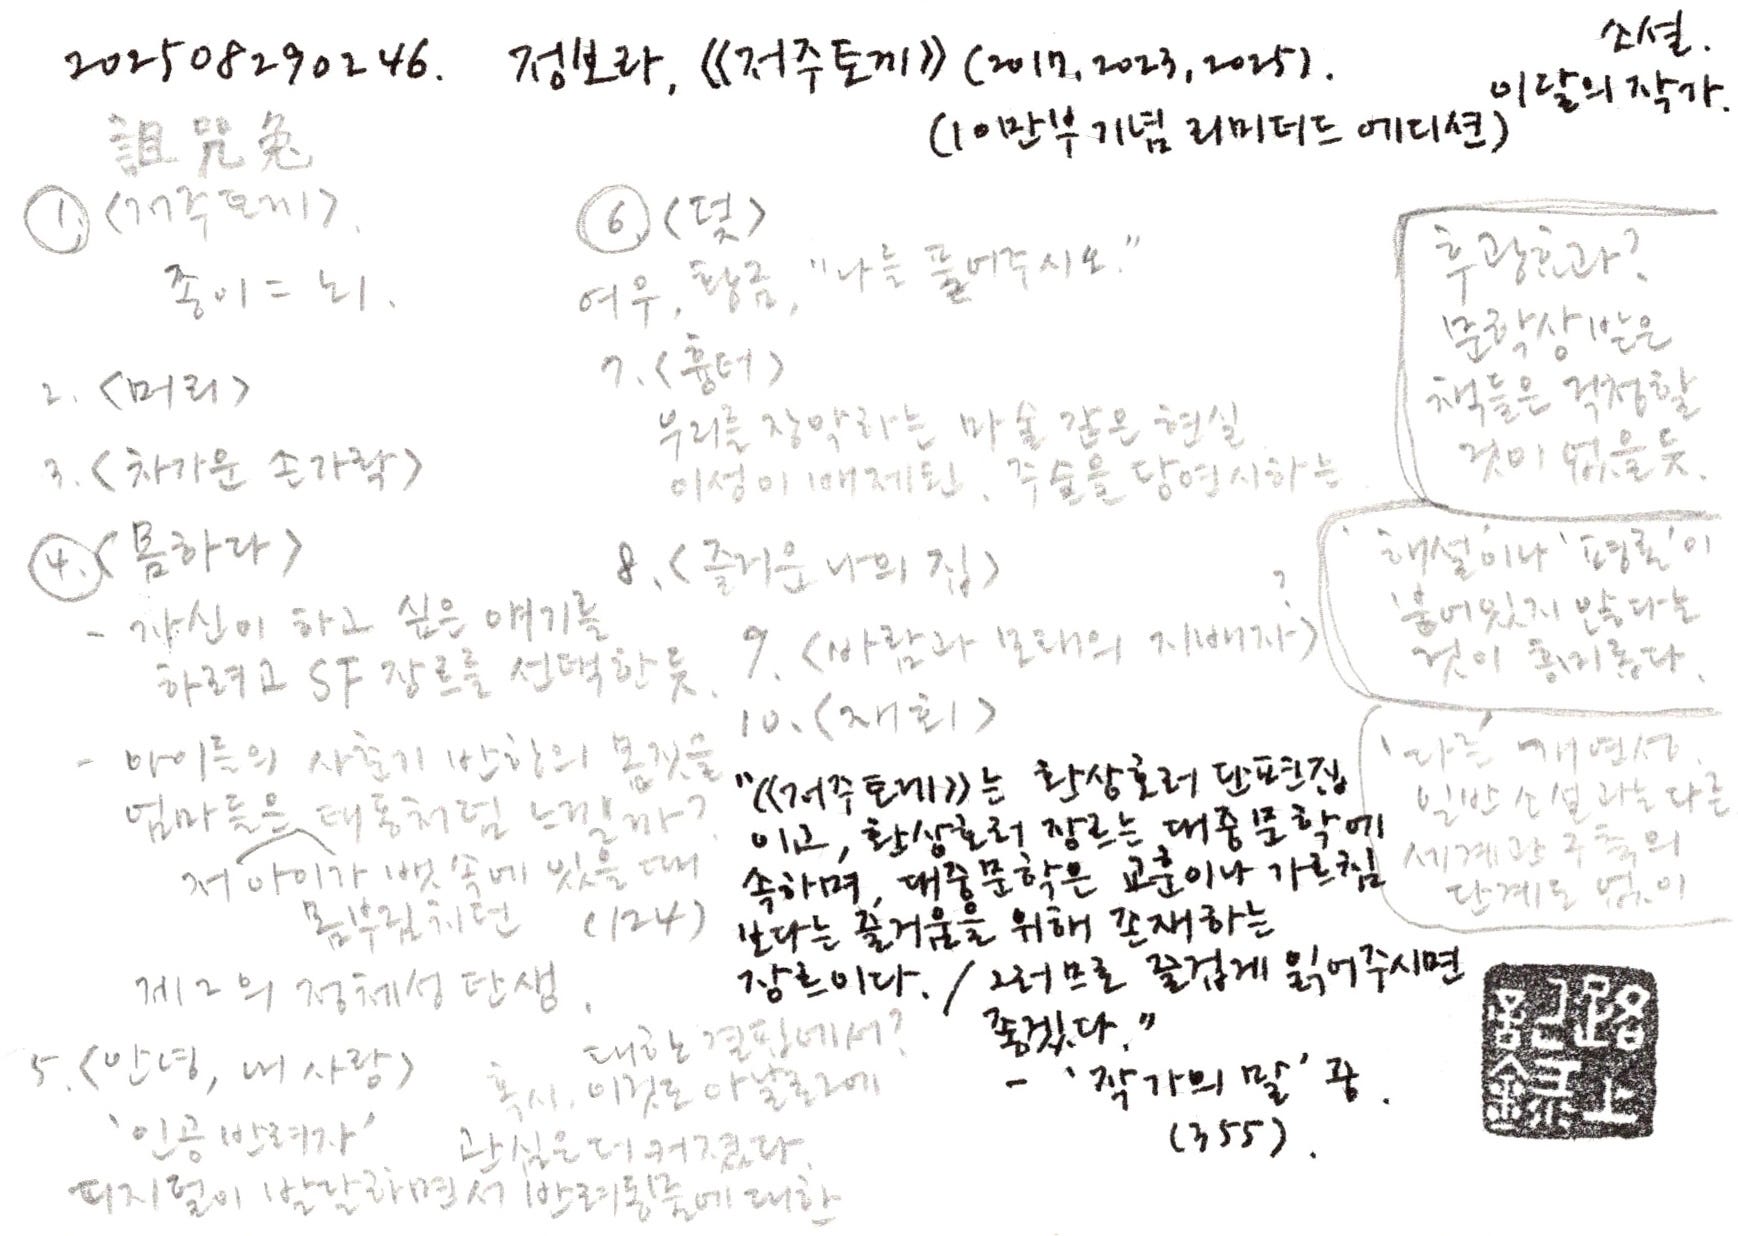 202508290246. 정보라, 《저주토끼》 (2017, 2023, 2025).
(10만부 기념 리미티드 에디션)
소설.
이달의 작가.
詛呪兔
1. <저주토끼>.
종이 = 뇌.
2. <머리>
3. <차가운 손가락>
4. <몸하다>
- 자신이 하고 싶은 얘기를
하려고 SF 장르를 선택한 듯.
- 아이들의 사춘기 반항의 몸짓을
엄마들은 태동처럼 느낄까?
저 아이가 뱃속에 있을 때
몸부림치던 (124)
제2의 정체성 탄생.
5. <안녕, 내 사랑>
'인공 반려자'
디지털이 발달하면서 반려동물에 대한
관심은 더 커졌다.
혹시, 이것도 아날로그에
대한 결핍에서?
6. <덫>
여우, 황금, "나를 풀어주시오."
7. <흉터>
우리를 장악하는 마술 같은 현실
이성이 배제된, 주술을 당연시하는
8. <즐거운 나의 집>
9. <바람과 모래의 지배자> ?
10. <재회>
"《저주토끼》는 환상호러 단편집
이고, 환상호러 장르는 대중문학에
속하며, 대중문학은 교훈이나 가르침
보다는 즐거움을 위해 존재하는
장르이다. / 그러므로 즐겁게 읽어주시면
좋겠다."
- '작가의 말' 중.
(355).
후광효과?
문학상 받은
책들은 걱정할
것이 없을 듯.
'해설'이나 '평론'이
붙어있지 않다는
것이 흥미롭다.
'다른' 개연성.
일반 소설과는 다른
세계관 구축의
단계도 없이